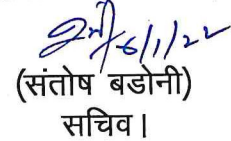 6/1/22
(संतोष बडोनी)
सचिव।